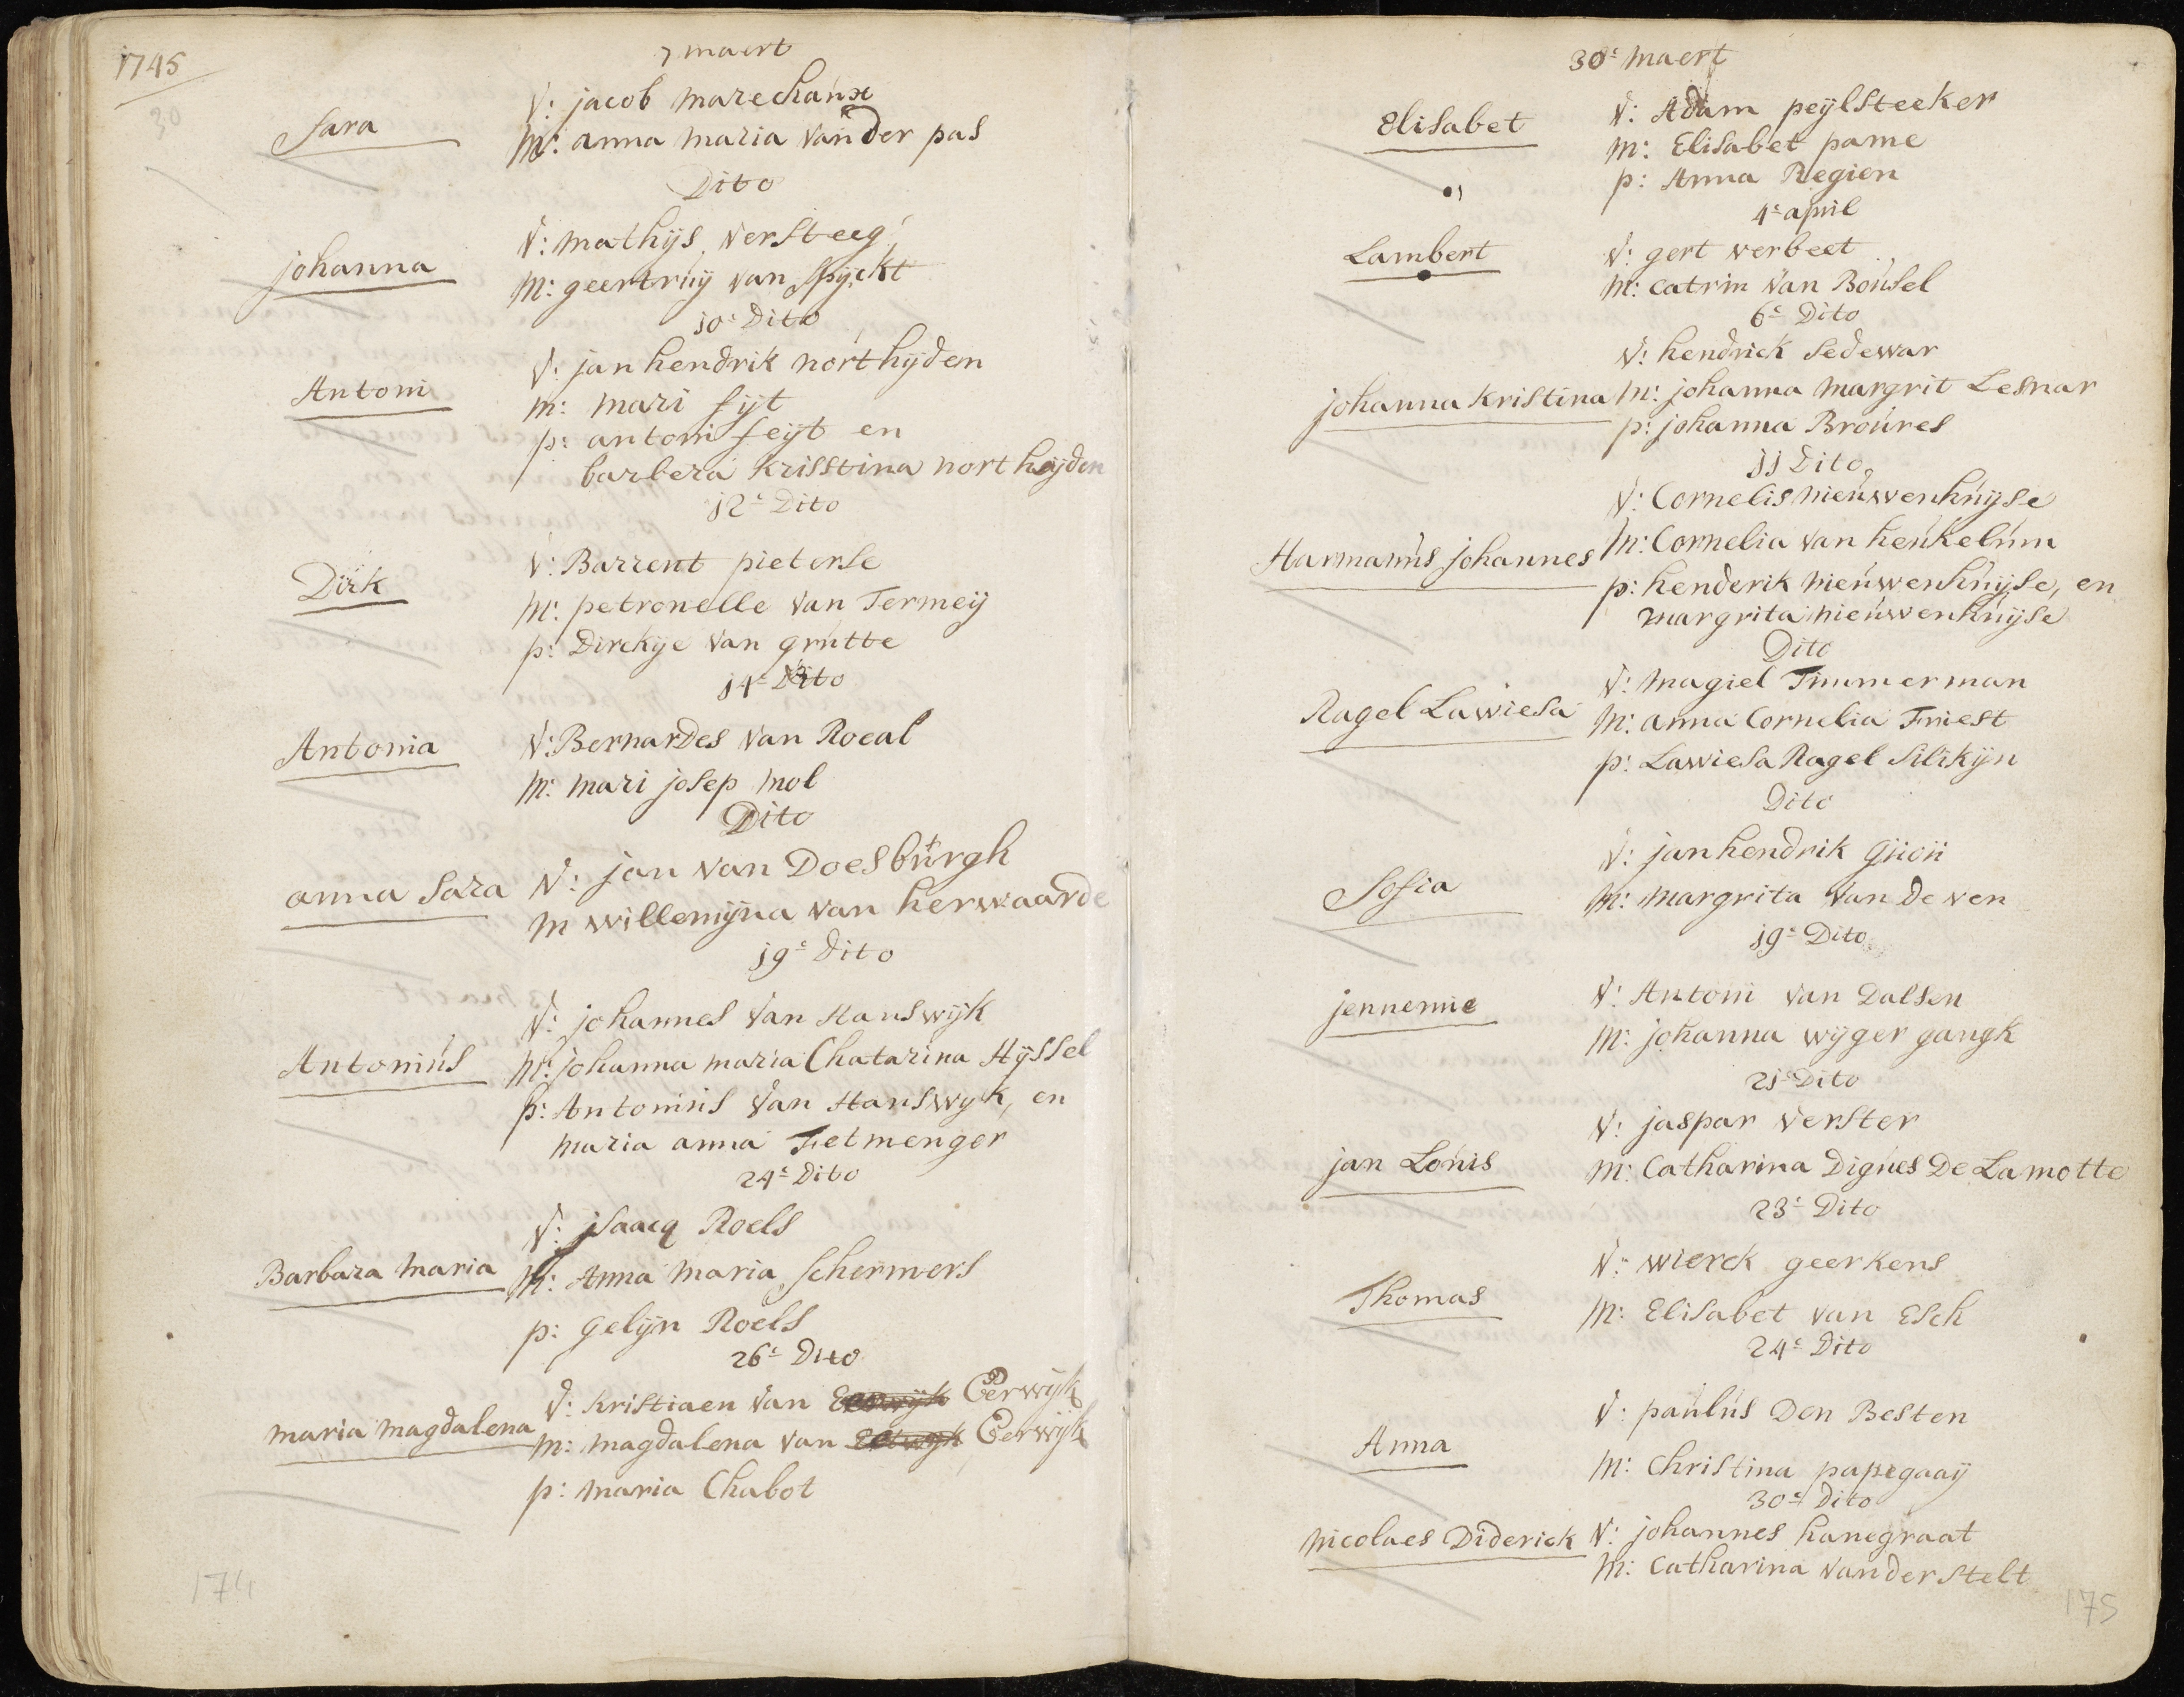 1745
30
7 maert
Sara
V: jacob marechanx
M: anna maria Van der pas
Dito
johanna
V: mathijs Versteeg
M: geertruij Van Spyckt
10e Dito
Antoni
V: jan hendrik northijden
m: mari fijt
p: antoni feijt en
barbera Krisstina northeijden
12e Dito
Dirk
V: Barrent pieterse
M: petronelle Van Termeij
p: Dirckije Van grutte
14e Dito
Antonia
V: Bernardes Van Roeal
M: mari josep mol
Dito
anna Sara
V: jan van Doesburgh
M willemijna van herwaarde
19e Dito
Antonius
V: johannes Van Hanswijk
M: johanna maria Chatarina Hijssel
p: Antonius Van Hanswyk, en
maria anna Fetmenger
24e Dito
Barbara Maria
V: jsaacq Roels
M: Anna Maria Schermers
p: gelijn Roels
26e Dito
maria magdalena
V: Kristiaen Van Eerwijk
m: magdalena Van Eerwijk
p: maria Chabot
174
30e maert
Elisabet
V: Adam peijlsteeker
M: Elisabet pame
p: Anna Regien
4e april
Lambert
V: gert verbeet
M: Catrin Van Bousel
6e Dito
johanna Kristina
V: hendrick Sedewar
M: johanna margrit Lesnar
p: johanna Broures
11 Dito
Harmanus johannes
V: Cornelis nieuwenhuijse
M: Cornelia Van heukelum
p: henderik nieuwenhuijse, en
margrita nieuwenhuijse
Dito
Ragel Lawiesa
V: magiel Timmerman
M: anna Cornelia Friest
p: Lawiesa Ragel Silikijn
Dito
Sofia
V: jan hendrik
M: margrita Van de ven
19e Dito
jennemie
V: Antoni Van Dalsen
M: johanna wijger gangk
21e Dito
jan Louis
V: jaspar Verster
M: Catharina Dignes De Lamotte
23e Dito
Thomas
V: wierck geerkens
M: Elisabet van Esch
24e Dito
Anna
V: paulus Den Besten
M: Christina papegaaij
30e Dito
Nicolaes Diderick
V: johannes hanegraat
M: Catharina Vander Stelt
175